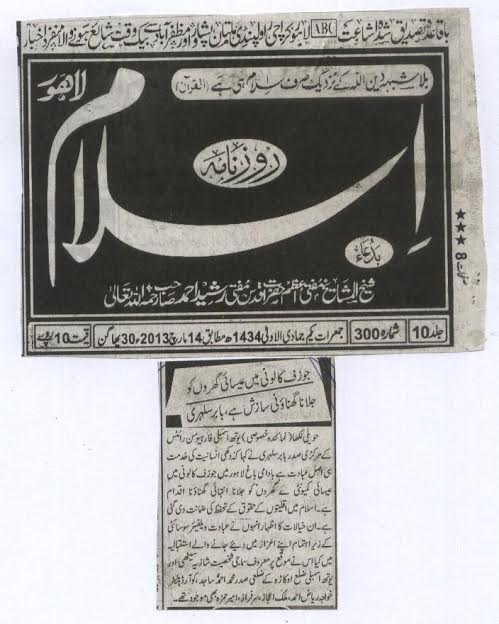 باقاعدہ تصدیق شدہ اشاعت ABC لاہور کراچی راولپنڈی ملتان پشاور اور مظفر آباد سے بیک وقت شائع ہونے والا منفرد اخبار
بلاشبہ دین اللہ کے نزدیک صرف اسلام ہی ہے (القرآن)
لاہور
روزنامہ
اسلام
بدعاء
شیخ المشائخ مفتی اعظم حضرت اقدس مفتی رشید احمد صاحب رحمہ اللہ تعالیٰ
★★★ 8 صفحات
جلد 10 شمارہ 300 جمعرات یکم جمادی الاولیٰ 1434ھ مطابق 14 مارچ 2013ء 30 پھاگن قیمت 10 روپے
جوزف کالونی میں عیسائی گھروں کو
جلانا گھناؤنی سازش ہے، بابر سلہری
حویلی لکھا (نمائندہ خصوصی) یوتھ اسمبلی فار ہیومن رائٹس
کے مرکزی صدر بابر سلہری نے کہا کہ دکھی انسانیت کی خدمت
ہی اصل عبادت ہے بادامی باغ لاہور میں جوزف کالونی میں
عیسائی کمیونٹی کے گھروں کو جلانا انتہائی گھناؤنا اقدام
ہے۔ اسلام میں اقلیتوں کے حقوق کے تحفظ کی ضمانت دی گئی
ہے۔ ان خیالات کا اظہار انہوں نے عبادت ویلفیئر سوسائٹی
کے زیر اہتمام اپنے اعزاز میں دیئے جانے والے استقبالیہ
میں کیا اس موقع پر معروف سماجی شخصیت شازیہ سیٹھی اور
یوتھ اسمبلی ضلع اوکاڑہ کے ضلعی صدر محمد احمد ساجد، کوآرڈینیٹر
خواجہ ریاض احمد، ملک اعجاز، سرفراز، امیر حمزہ بھی موجود تھے۔